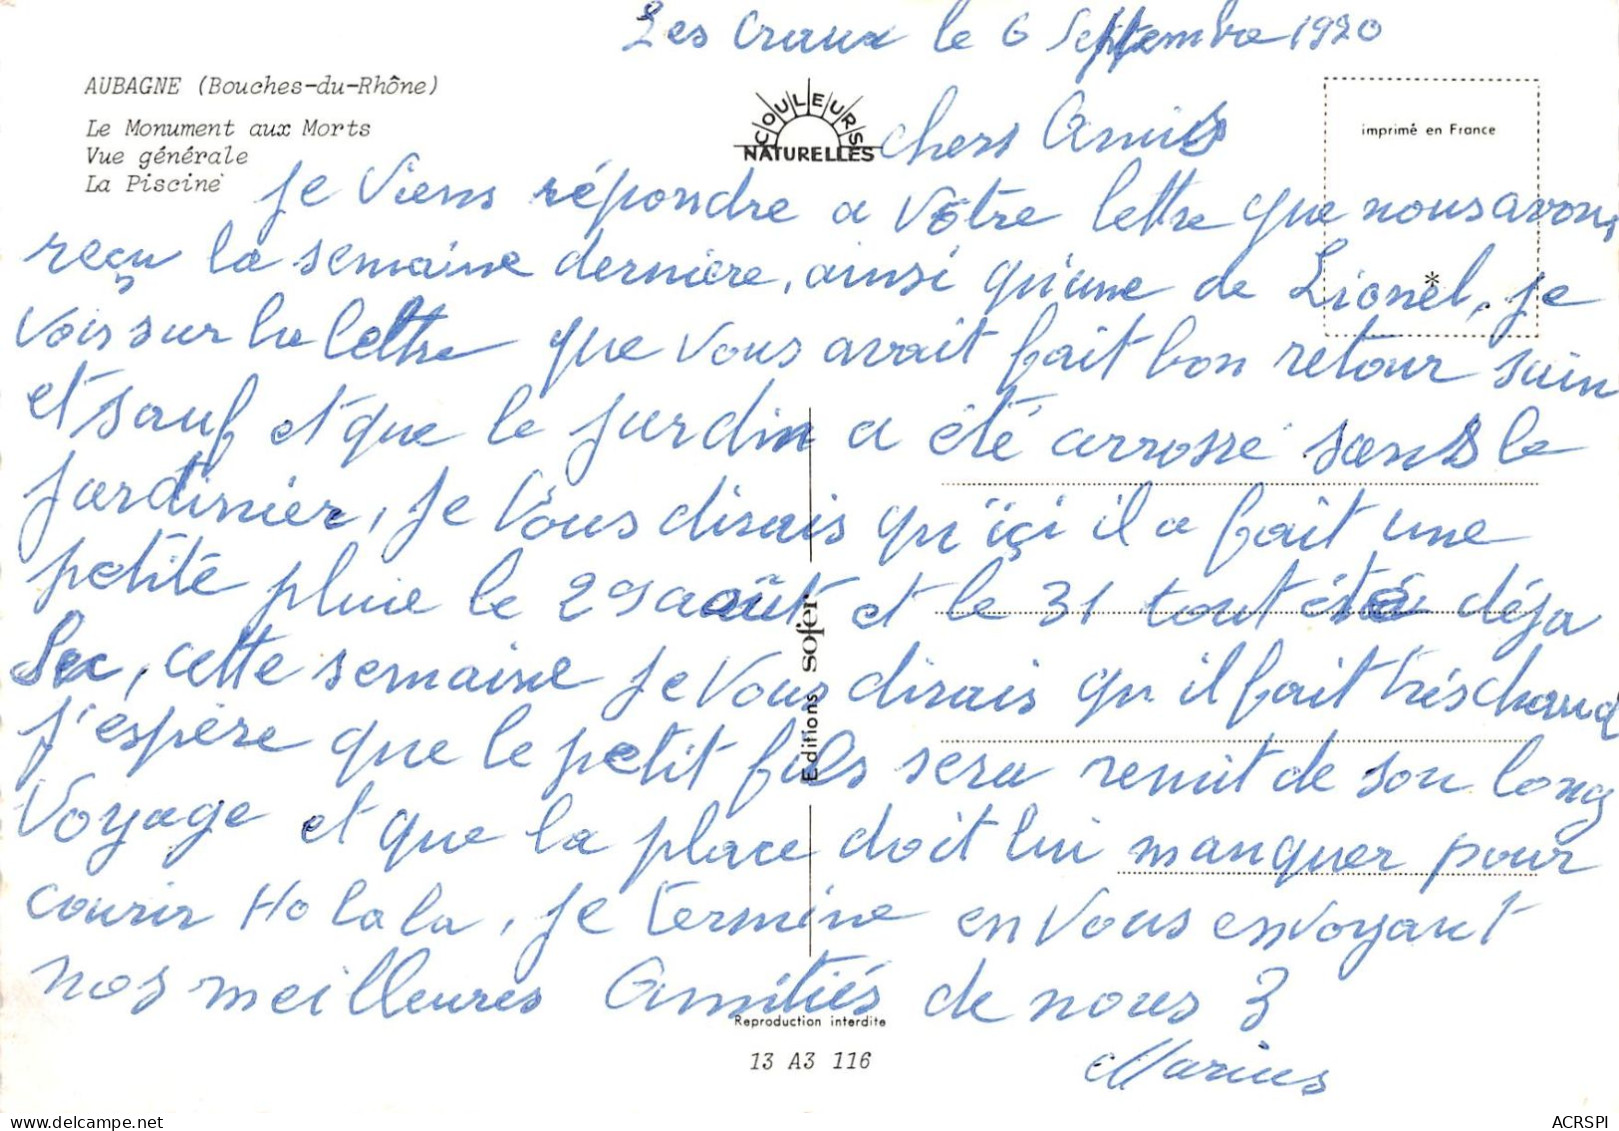 Les Craux le 6 Septembre 1920
AUBAGNE (Bouches-du-Rhône)
Le Monument aux Morts
Vue générale
La Piscine
COULEURS
NATURELLES
imprimé en France
chers Amis
je viens répondre a vôtre lettre que nous avons
reçu la semaine dernière, ainsi qu'une de Lionel, je
vois sur la lettre que vous avait fait bon retour sain
et sauf et que le jardin a été arrossé sans le
jardinier, je vous dirais qu'içi il a fait une
petite pluie le 29 août et le 31 tout été déja
sec, cette semaine je vous dirais qu'il fait très chaud
j'espère que le petit fils sera remit de son long
voyage et que la place doit lui manquer pour
courir Ho la la, je termine en vous envoyant
nos meilleures Amitiés de nous 3
Marius
Editions sofer
Reproduction interdite
13 A3 116
delcampe.net
ACRSPI